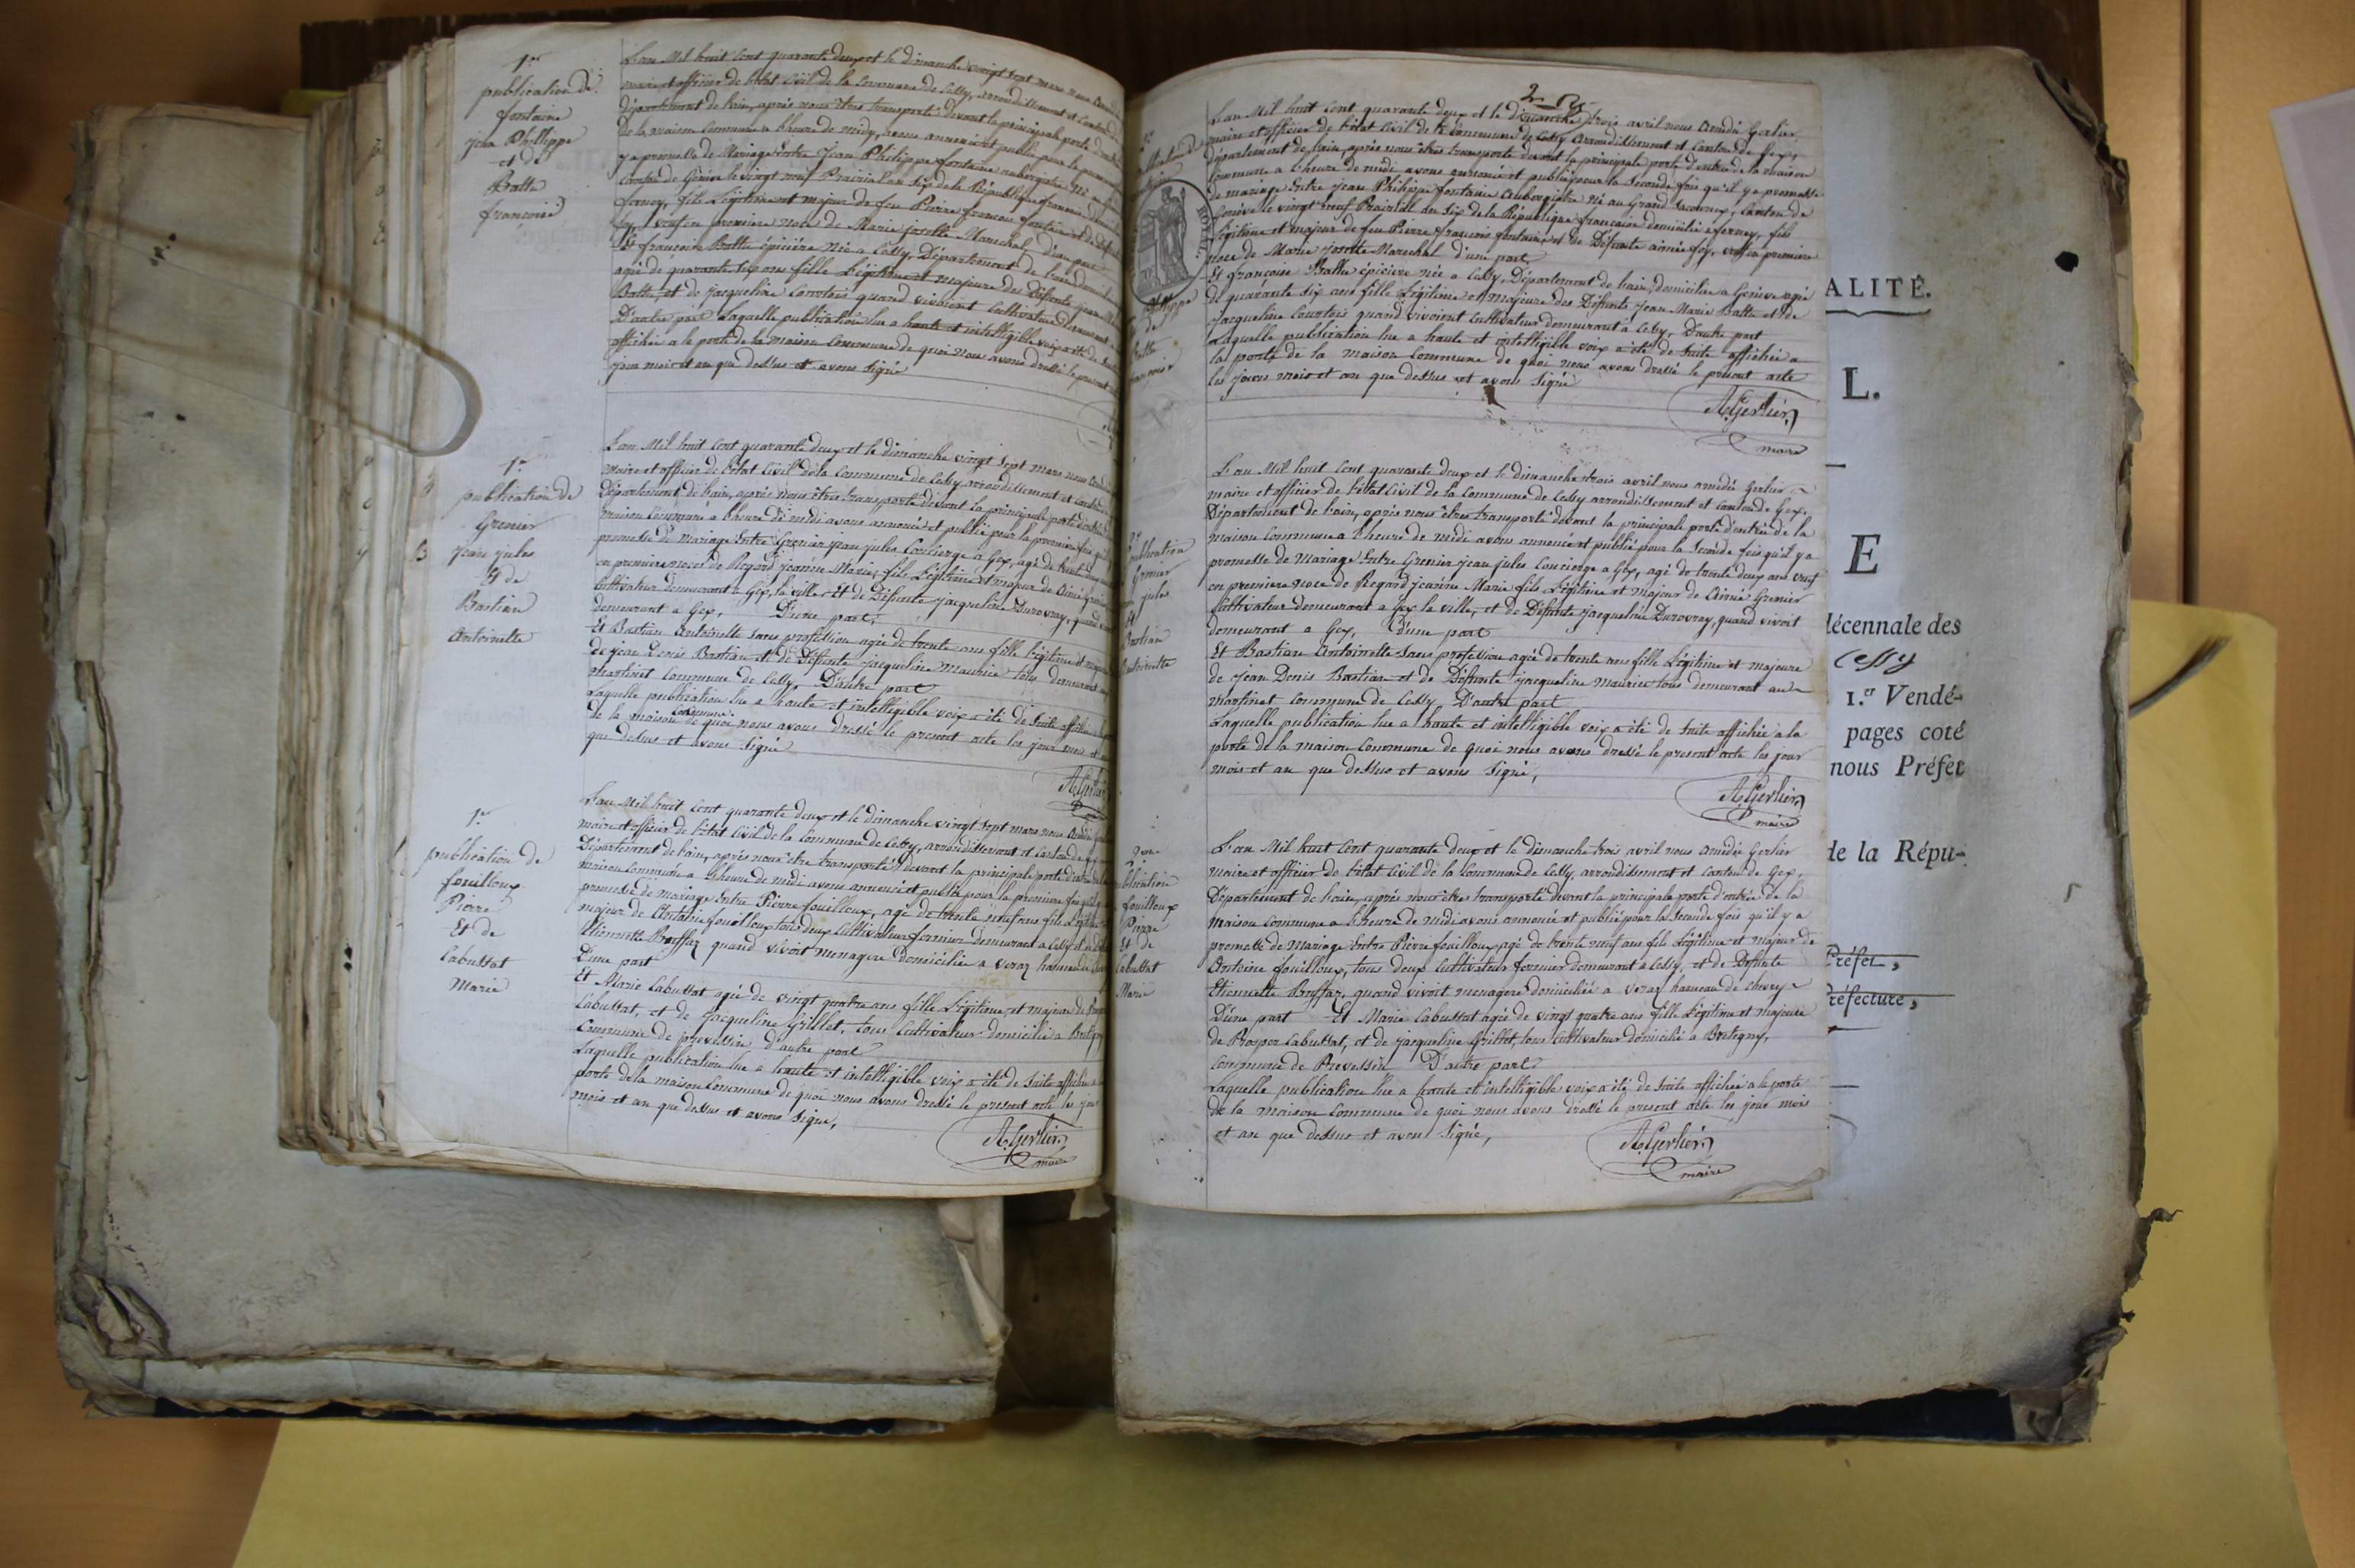 1.re
publication de
fontaine
jean Philippe
et de
Battu
françoise
L'an Mil huit Cent quarante deux et le dimanche vingt sept mars nous
maire et officier de l'état Civil de la Commune de Cessy, arrondissement et Canton
département de l'ain, après nous êtres transporté devant la principale porte
de la maison Commune a l'heure de midy, avons annoncé et publié pour la
y a promesse de Mariage Entre Jean Philippe fontaine aubergiste Né au
Canton de Genève le vingt neuf Prairial an Six de la République francaise
ferney, fils Légitime et majeur de feu Pierre francois fontaine et de
fey, veuf en premiere noce de Marie josette Marechal D'une part
Et françoise Battu épicière née a Cessy, Département de l'ain
agée de quarante six ans fille Légitime et majeure des Défunts jean
Battu, et de jacqueline Courtois quand vivoient Cultivateur
D'autre part Laquelle publication lue a haute et intelligible voix a été de
affichée a la porte de la maison Commune de quoi nous avons dressé le present
jour mois et an que dessus et avons signé
1.re
publication de
Grenier
jean jules
Et de
Bastian
Antoinette
L'an Mil huit Cent quarante deux et le dimanche vingt sept mars nous
maire et officier de l'état Civil de la Commune de Cessy arrondissement et
Département de l'ain, après nous êtres transporté devant la principale porte
maison Commune a l'heure de midi avons annoncé et publié pour la premiere fois
promesse de Mariage Entre Grenier jean jules Concierge a Gex, agé de trente
en premiere noces de Regard jeanne Marie, fils Légitime et majeur de Aimé
Cultivateur demeurant a Gex, la ville, Et de Défunte jacqueline Durovray, quand
demeurant a Gex, D'une part,
Et Bastian Antoinette sans profession agée de trente ans fille légitime et
de jean Denis Bastian et de Défunte jacqueline Maurice tous demeurant
martinet Commune de Cessy, D'autre part
Laquelle publication lue a haute et intelligible voix a été de suite affichée
Commune
de la maison de quoi nous avons dressé le present acte les jour mois
que dessus et avons signé
A. Gerlier
1.re
publication de
fouilloux
Pierre
Et de
Cabussat
Marie
L'an Mil huit Cent quarante deux et le dimanche vingt sept mars nous
maire et officier de l'état Civil de la Commune de Cessy, arrondissement et Canton de
Département de l'ain, après nous etre transporté devant la principale porte d'entrée
maison Commune a l'heure de midi avons annoncé et publié pour la premiere fois
promesse de mariage Entre Pierre fouilloux, agé de trente neuf ans fils Légitime
majeur de Antoine fouilloux tous deux Cultivateur fermier demeurant a Cessy et de
Etiennette Brossaz quand vivoit menagere domiciliée a veraz hameau de
D'une part
Et Marie Cabussat agée de vingt quatre ans fille Légitime et majeure de
Cabussat, et de jacqueline Grillet, tous Cultivateur domicilié a
Commune de prevessin d'autre part
Laquelle publication lue a haute et intelligible voix a été de suite affichée
porte de la maison Commune de quoi nous avons dressé le present acte les jour
mois et an que dessus et avons signé,
A. Gerlier
maire
L'an Mil huit Cent quarante deux et le dimanche trois avril nous Amédé Gerlier
maire et officier de l'état Civil de la Commune de Cessy Arrondissement et Canton de Gex,
département de l'ain, après nous êtres transporté devant la principale porte d'entrée de la maison
Commune a l'heure de midi avons annoncé et publié pour la Seconde fois qu'il y a promesse
de mariage Entre jean Philippe fontaine Aubergiste né au Grand Canton de
Genève le vingt neuf Prairial an Six de la République françaaise domicilié a ferney, fils
Légitime et majeur de feu Pierre françois fontaine, et de Défunte aimée fey, veuf en premiere
noce de Marie josette Marechal d'une part
Et françoise Battu épicière née a Cessy, Département de l'ain, domiciliée a Genève agée
de quarante six ans fille Légitime et majeure des Défunts jean Marie Battu et de
jacqueline Courtois quand vivoient Cultivateur demeurant a Cessy, D'autre part
Laquelle publication lue a haute et intelligible voix a été de suite affichée a
la porte de la maison Commune de quoi nous avons dressé le present acte
les jours mois et an que dessus et avons signé
A. Gerlier
maire
publication
Grenier
jules
Et
Bastian
Antoinette
L'an Mil huit Cent quarante deux et le dimanche trois avril nous amédé Gerlier
maire et officier de l'état Civil de la Commune de Cessy arrondissement et Canton de Gex,
Département de l'ain, après nous êtres transporté devant la principale porte d'entrée de la
maison Commune a l'heure de midi avons annoncé et publié pour la Seconde fois qu'il y a
promesse de Mariage Entre Grenier jean jules Concierge a Gex, agé de trente deux ans veuf
en premiere noce de Regard jeanne Marie fils Légitime et majeur de Aimé Grenier
Cultivateur demeurant a Gex la ville, et de Défunte jacqueline Durovray, quand vivoit
demeurant a Gex, D'une part
Et Bastian Antoinette Sans profession agée de trente ans fille Légitime et majeure
de jean Denis Bastian et de Défunte jacqueline maurice tous demeurant au
martinet Commune de Cessy D'autre part
Laquelle publication lue a haute et intelligible voix a été de suite affichée a la
porte de la maison Commune de quoi nous avons dressé le present acte les jour
mois et an que dessus et avons signé,
A. Gerlier
maire
publication
fouilloux
Pierre
Et de
Cabussat
Marie
L'an Mil huit Cent quarante deux et le dimanche trois avril nous amédée Gerlier
maire et officier de l'état Civil de la Commune de Cessy, arrondissement et Canton de Gex,
Département de l'ain, après nous être transporté devant la principale porte d'entrée de la
maison Commune a l'heure de midi avons annoncé et publié pour la Seconde fois qu'il y a
promesse de Mariage Entre Pierre fouilloux agé de trente neuf ans fils Légitime et majeur de
Antoine fouilloux, tous deux Cultivateur fermier demeurant a Cessy, et de Défunte
Etiennette Brossaz, quand vivoit menagere domiciliée a veraz hameau de Chevry
D'une part Et Marie Cabussat agée de vingt quatre ans fille Légitime et majeure
de Prosper Cabussat, et de jacqueline Grillet, tous Cultivateur domicilié a Bretigny,
Commune de Prevessin D'autre part
Laquelle publication lue a haute et intelligible voix a été de suite affichée a la porte
de la maison Commune de quoi nous avons dressé le present acte les jour mois
et an que dessus et avons signé,
A. Gerlier
maire
ALITÉ.
L.
E
décennale des
Cessy
1.er Vendé-
pages coté
nous Préfet
de la Répu-
Préfet,
réfecture,